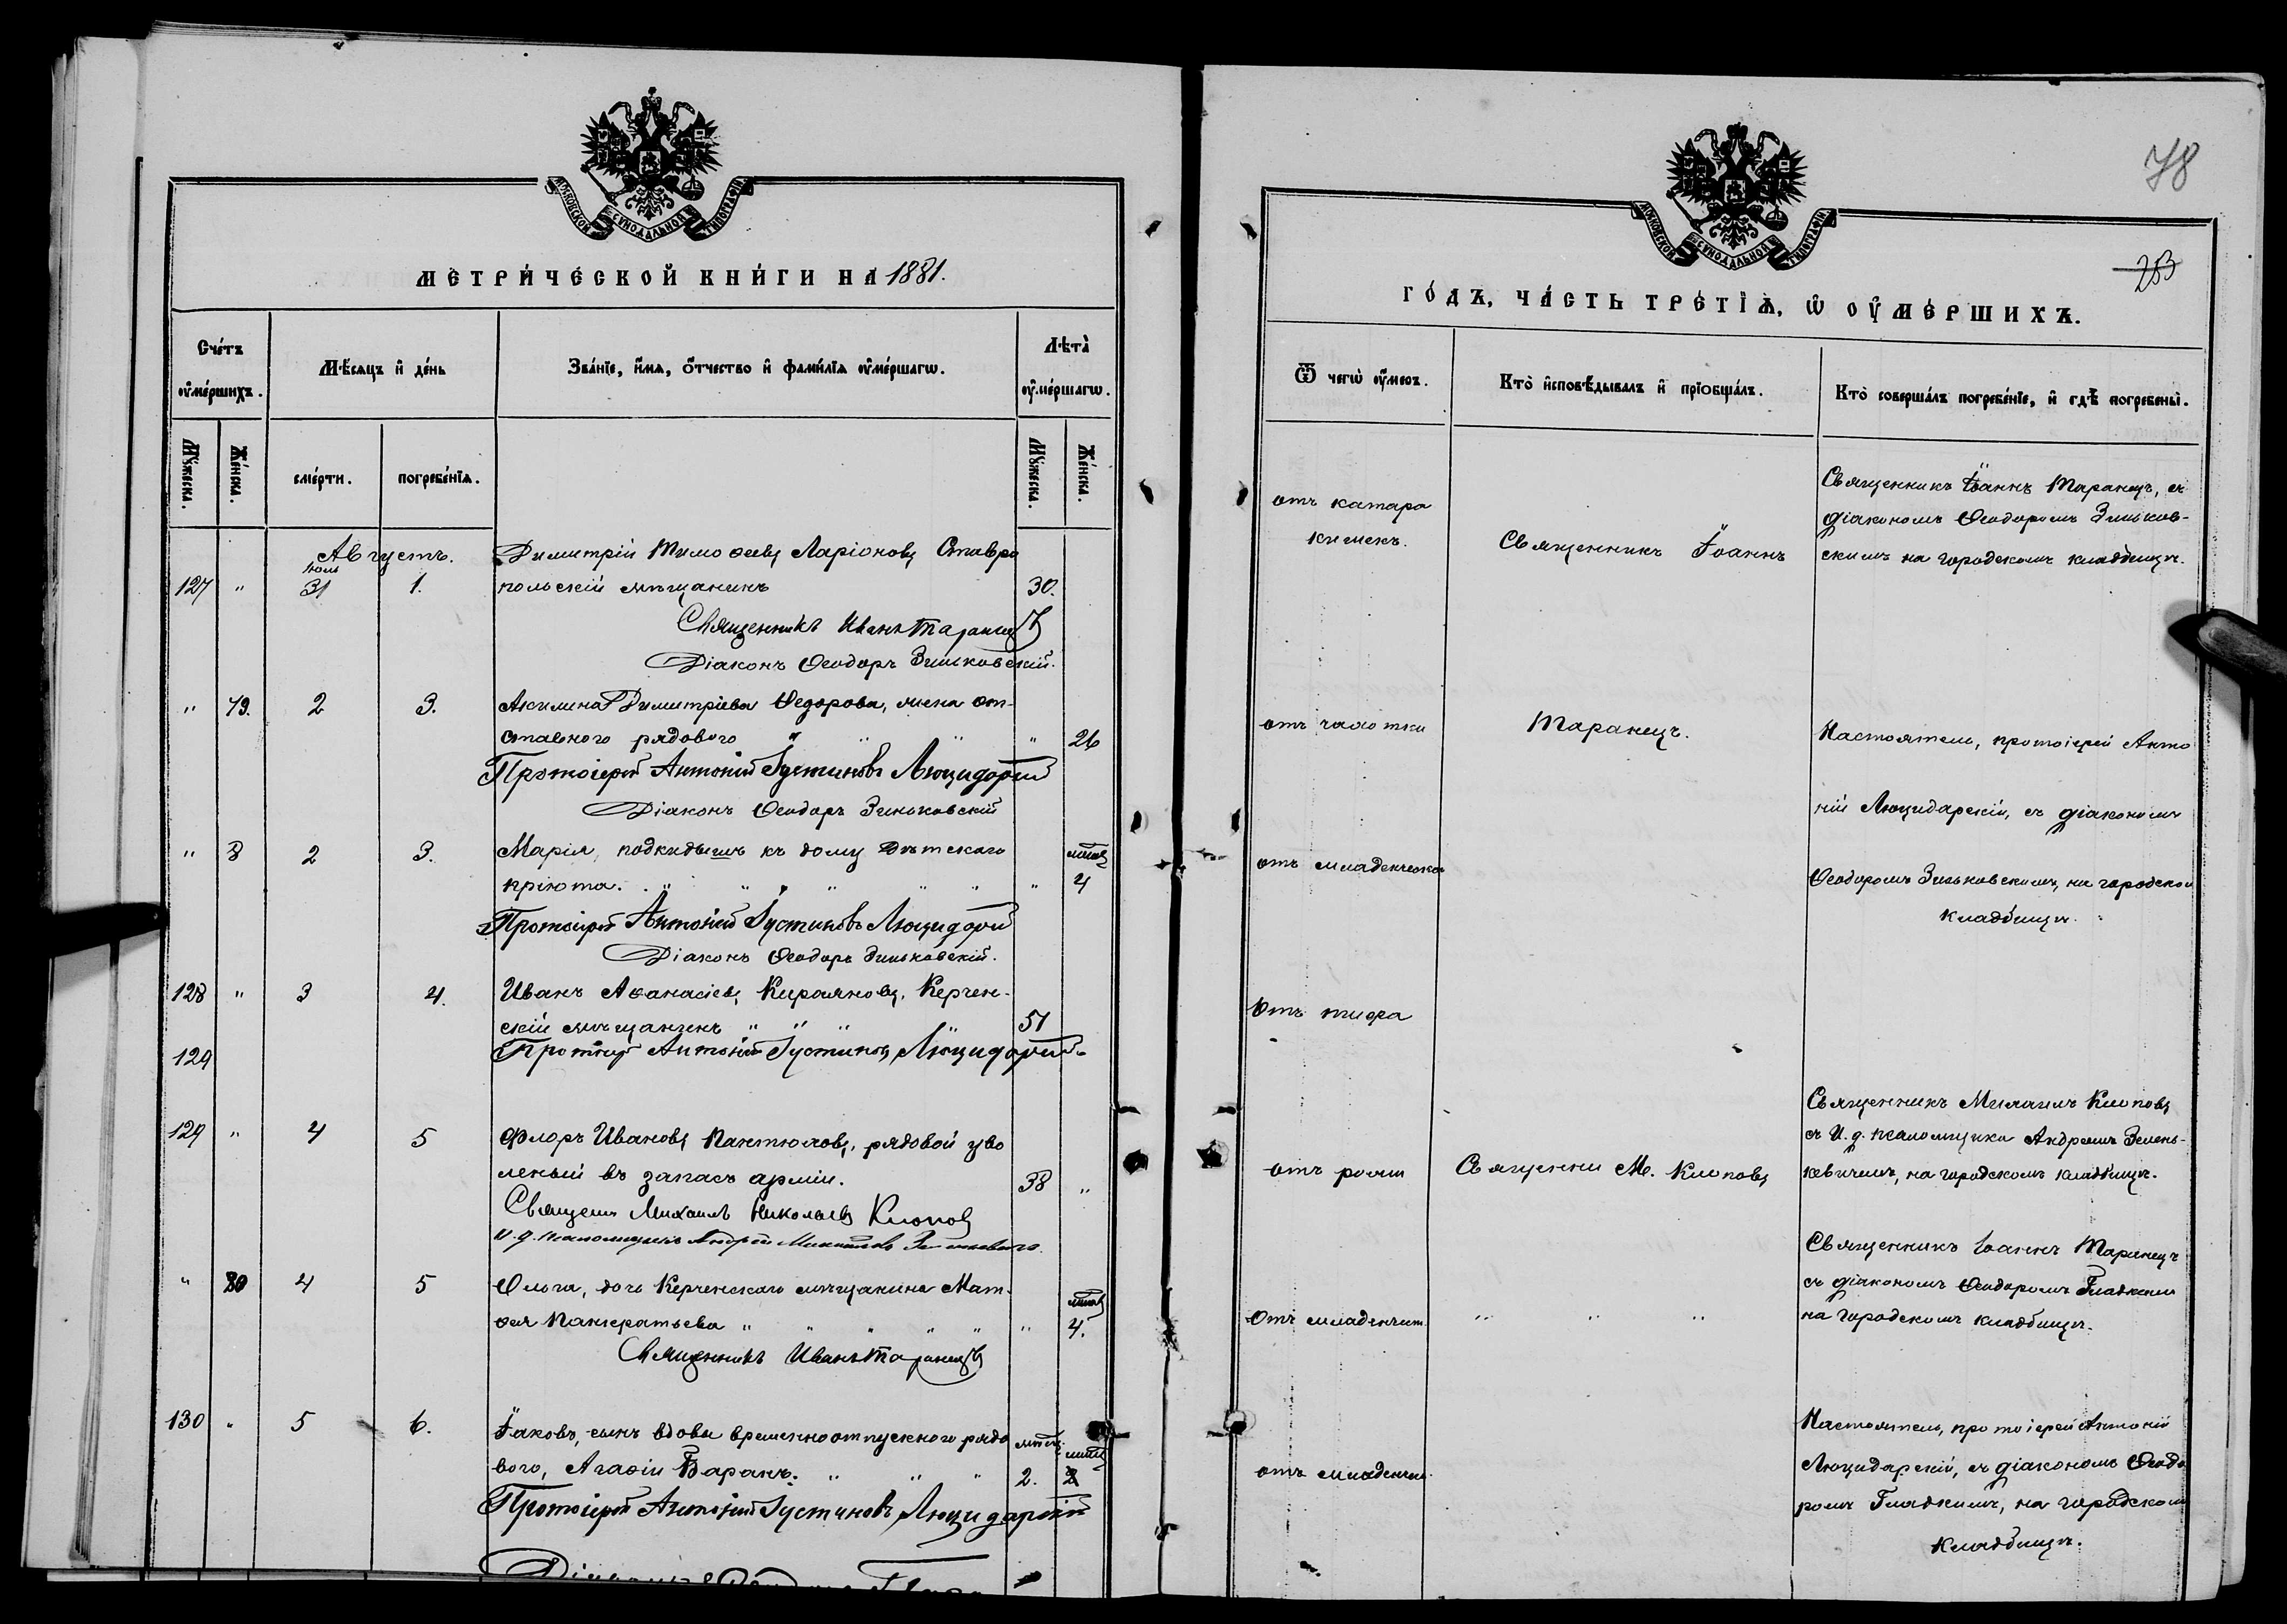 МОСКОВСКОЙ СѴНОДАЛЬНОЙ ТИПОГРАФІИ
МЕТРИ́ЧЕСКОЙ КНИ́ГИ НА 1881.
Сче́тъ ᲂу҆ме́ршихъ.
Мѣ́сяцъ и҆ де́нь
Зва́нїе, и҆́мѧ, ѻ҆́тчество и҆ фами́лїѧ ᲂу҆ме́ршагѡ.
Лѣ́та ᲂу҆ме́ршагѡ.
Мꙋ́жеска.
Же́нска.
сме́рти.
погребе́нїѧ.
Мꙋ́жеска.
Же́нска.
Августъ.
Димитрій Тимоѳеевъ Ларіоновъ Ставро
127 " іюля 31 1. польскій мѣщанинъ 30.
Священникъ Иванъ Таранецъ
Діаконъ Ѳеодоръ Зиньковскій.
" 79. 2 3. Акилина Димитріева Ѳедорова, жена от-
ставного рядового " " " " 26
Протоіерей Антоній Іустиновъ Люцидарскій
Діаконъ Ѳеодоръ Зиньковскій
" 8 2 3. Марія, подкидышъ къ дому Дѣтскаго
пріюта. " " " " " " " мѣсяц 4
Протоіерей Антоній Іустиновъ Люцидарскій
Діаконъ Ѳеодоръ Зиньковскій.
128 " 3 4. Иванъ Аѳанасіевъ Кирьяновъ, Керчен-
скій мѣщанинъ " " " " 51
129 Протоіерей Антоній Іустиновъ Люцидарскій
129 " 4 5 Флоръ Ивановъ Пантюховъ, рядовой уво
леный въ запасъ арміи. 38 "
Священн Михаилъ Николаевъ Клоповъ
И. д. псаломщика Андрей
" 80 4 5 Ольга, дочь Керченскаго мѣщанина Мат-
ѳея Панкратьева " " " " " " мѣсяц 4.
Священникъ Иванъ Таранецъ
130 " 5 6. Іаковъ, сынъ вдовы временноотпускного рядо
вого, Агаѳіи Баранъ. " " " мѣсяц 2.
Протоіерей Антоній Іустиновъ Люцидарскій
78
МОСКОВСКОЙ СѴНОДАЛЬНОЙ ТИПОГРАФІИ
253
ГО́ДЪ, ЧА́СТЬ ТРЕ́ТЇѦ, Ѡ҆ ОУ҆МЕ́РШИХЪ.
Ѿ чегѡ̀ ᲂу҆́меръ.
Кто̀ и҆сповѣ́дывалъ и҆ прїѡбща́лъ.
Кто̀ соверша́лъ погребе́нїе, и҆ гдѣ̀ погребены̀.
отъ катара
кишекъ.
Священникъ Іоаннъ
Священникъ Іоаннъ Таранецъ, съ
діакономъ Ѳеодоромъ Зиньков-
скимъ на городскомъ кладбищѣ.
отъ чахотки
Таранецъ.
Настоятель, протоіерей Анто
ній Люцидарскій, съ діакономъ
отъ младенческой
Ѳеодоромъ Зиньковскимъ, на городском
кладбищѣ.
Отъ тифа
Священникъ Михаилъ Клоповъ
съ И. д. псаломщика Андреемъ Зелень-
кевичемъ, на городскомъ кладбищѣ.
отъ рожи
Священни М. Клоповъ
Священникъ Іоаннъ Таранецъ
съ діакономъ Ѳеодоромъ Гладкимъ
на городскомъ кладбищѣ.
Отъ младенчест. " " "
Настоятель, протоіерей Антоній
Люцидарскій, съ діакономъ Ѳеодо
ромъ Гладкимъ, на городском
кладбищѣ.
отъ младенчес.